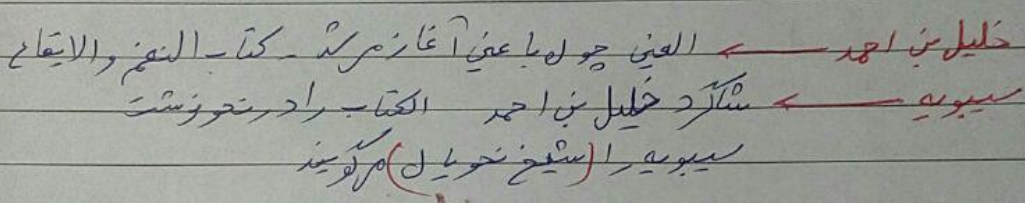 خلیل بن احمد ← العین چون با عین آغاز می‌شد - کتاب النغم والایقاع
سیبویه ← شاگرد خلیل بن احمد الکتاب را در نحو نوشت
سیبویه را (شیخ نحویان) می‌گویند